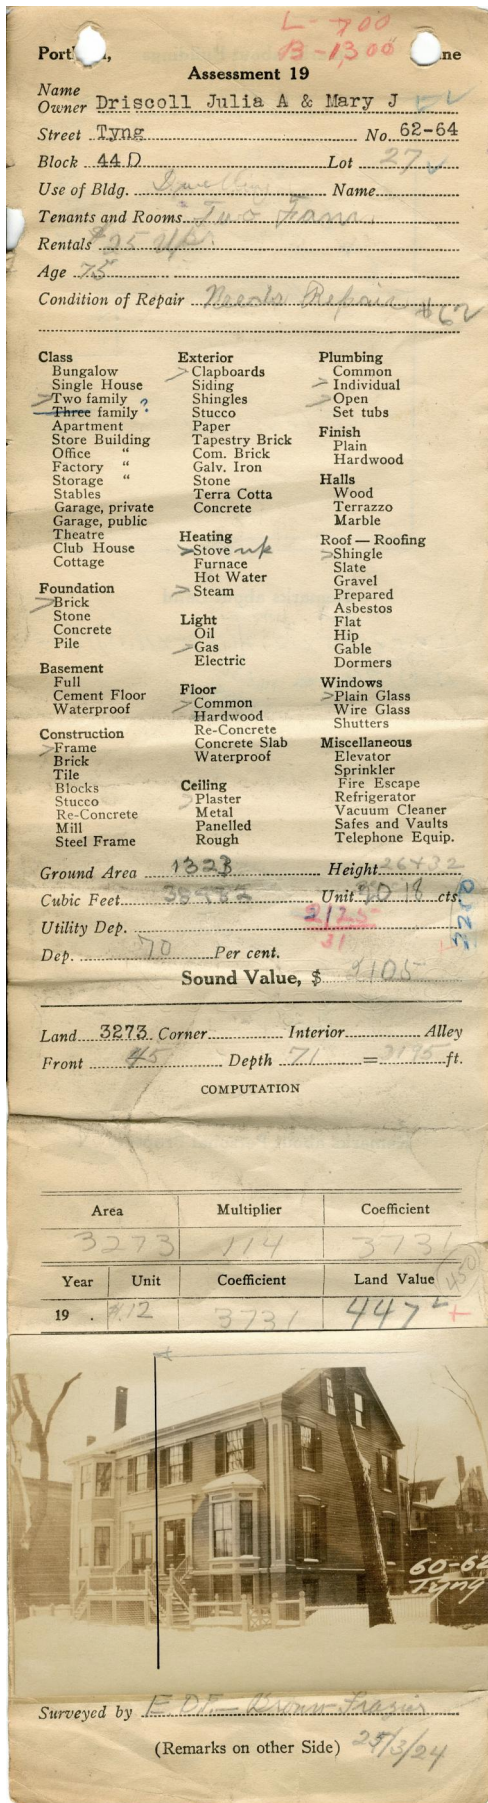 L- 700
B-1,300
Port ne
Assessment 19
Name
Owner Driscoll Julia A & Mary J
Street Tyng No. 62-64
Block 44D Lot 27
Use of Bldg. Dwelling Name
Tenants and Rooms Two Fam.
Rentals $25 up.
Age 75
Condition of Repair Needs Repair $62
Class
Bungalow
Single House
Two family
Three family ?
Apartment
Store Building
Office "
Factory "
Storage "
Stables
Garage, private
Garage, public
Theatre
Club House
Cottage
Foundation
Brick
Stone
Concrete
Pile
Basement
Full
Cement Floor
Waterproof
Construction
Frame
Brick
Tile
Blocks
Stucco
Re-Concrete
Mill
Steel Frame
Exterior
Clapboards
Siding
Shingles
Stucco
Paper
Tapestry Brick
Com. Brick
Galv. Iron
Stone
Terra Cotta
Concrete
Heating
Stove
Furnace
Hot Water
Steam
Light
Oil
Gas
Electric
Floor
Common
Hardwood
Re-Concrete
Concrete Slab
Waterproof
Ceiling
Plaster
Metal
Panelled
Rough
Plumbing
Common
Individual
Open
Set tubs
Finish
Plain
Hardwood
Halls
Wood
Terrazzo
Marble
Roof — Roofing
Shingle
Slate
Gravel
Prepared
Asbestos
Flat
Hip
Gable
Dormers
Windows
Plain Glass
Wire Glass
Shutters
Miscellaneous
Elevator
Sprinkler
Fire Escape
Refrigerator
Vacuum Cleaner
Safes and Vaults
Telephone Equip.
Ground Area 1323 Height 26432
Cubic Feet Unit 20 18 cts.
Utility Dep. 2125
31
2250
Dep. 70 Per cent.
Sound Value, $ 2105
Land 3273 Corner Interior Alley
Front 45 Depth 71 = 3195 ft.
COMPUTATION
Area Multiplier Coefficient
3273 114 3731
Year Unit Coefficient Land Value 450
19 . $.12 3731 447
60-62
Tyng
Surveyed by E. D. F. — Brown Frazier
(Remarks on other Side) 25/3/24